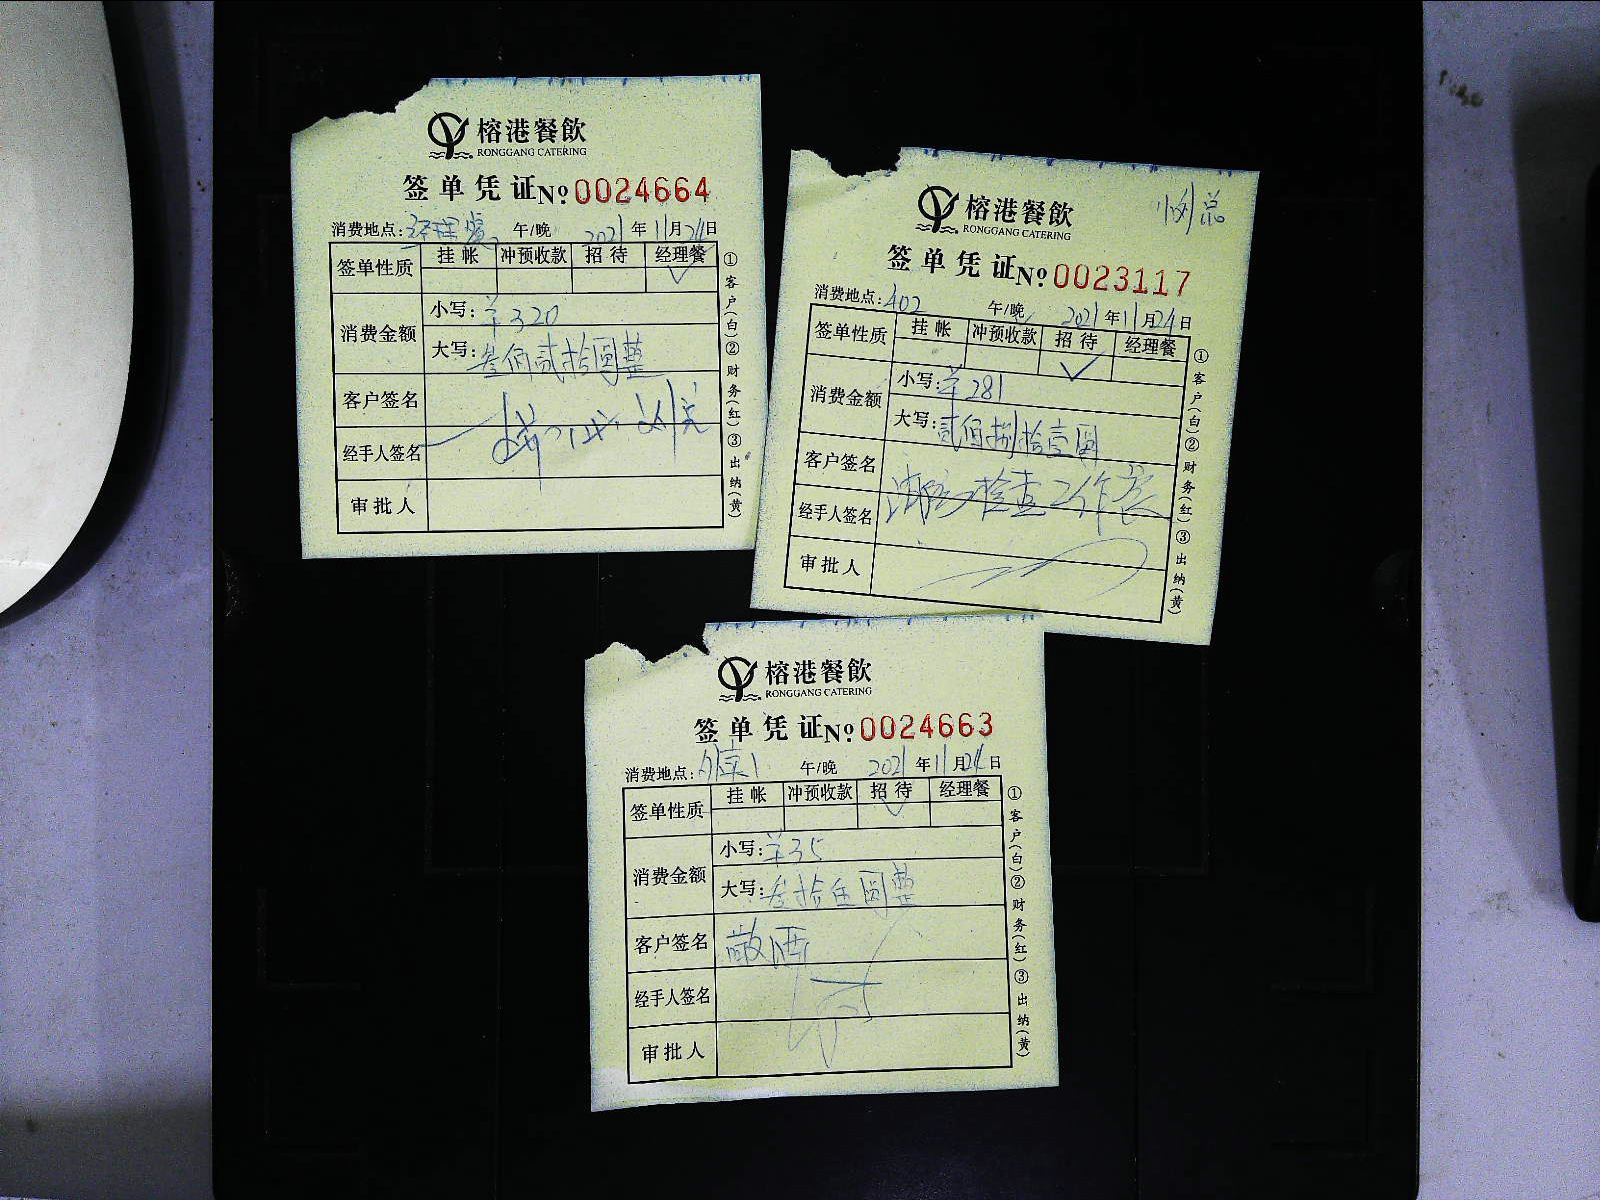 榕港餐飲
RONGGANG CATERING
签单凭证 No 0024664
消费地点: 午/晚 2021年11月24日
签单性质 挂帐 冲预收款 招待 经理餐
✓
消费金额 小写:羊320
大写:叁佰贰拾圆整
客户签名
经手人签名
审批人
①客户(白)②财务(红)③出纳(黄)
榕港餐飲
RONGGANG CATERING
签单凭证 No 0023117
消费地点:402 午/晚 2021年11月24日
签单性质 挂帐 冲预收款 招待 经理餐
✓
消费金额 小写:羊281
大写:贰佰捌拾壹圆
客户签名 检查工作餐
经手人签名
审批人
①客户(白)②财务(红)③出纳(黄)
榕港餐飲
RONGGANG CATERING
签单凭证 No 0024663
消费地点: 午/晚 2021年11月24日
签单性质 挂帐 冲预收款 招待 经理餐
✓
消费金额 小写:羊35
大写:叁拾伍圆整
客户签名 敬酒
经手人签名
审批人
①客户(白)②财务(红)③出纳(黄)